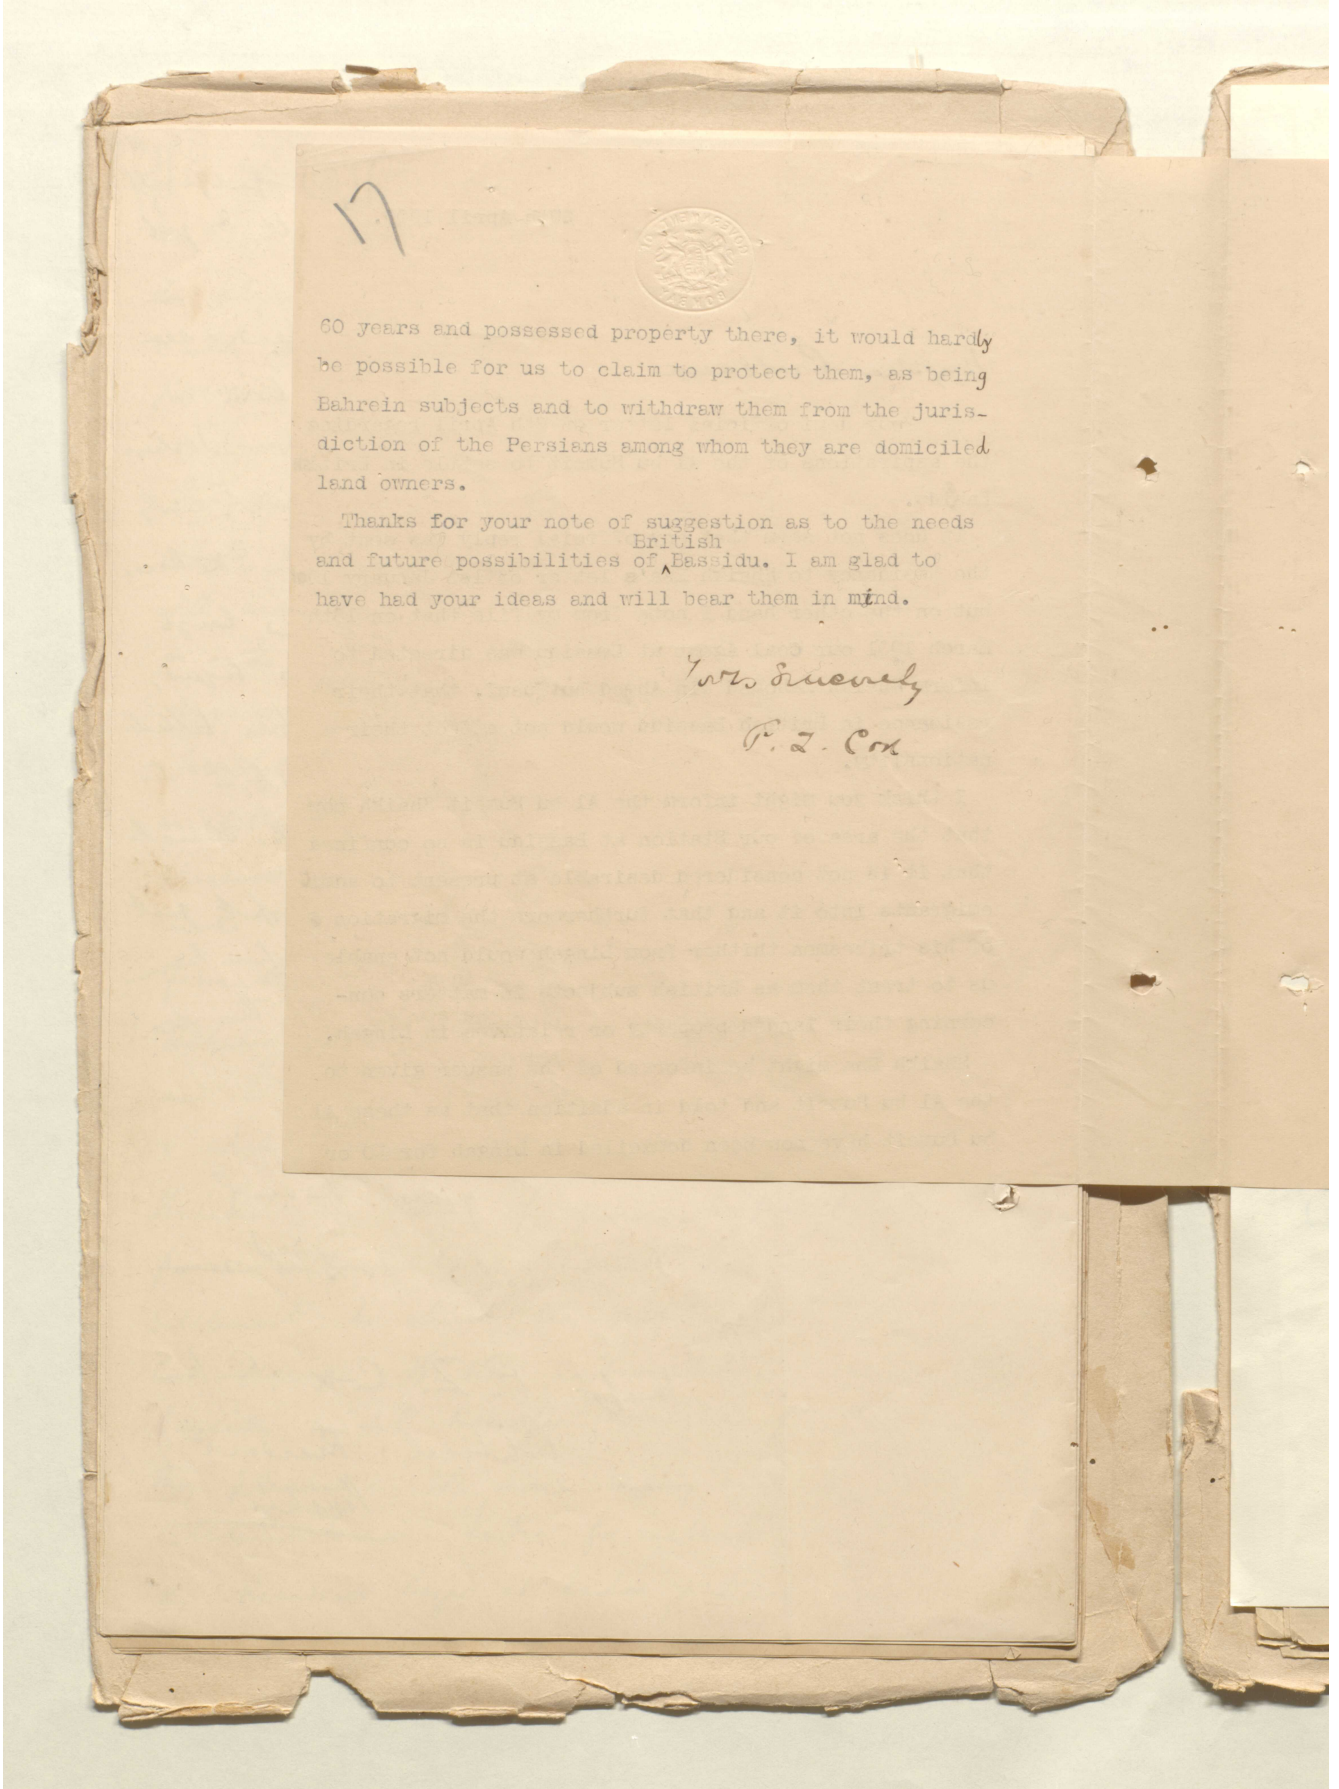 17
60 years and possessed property there, it would hardly
be possible for us to claim to protect them, as being
Bahrein subjects and to withdraw them from the juris-
diction of the Persians among whom they are domiciled
land owners.
Thanks for your note of suggestion as to the needs
British
and future possibilities of ^Bassidu. I am glad to
have had your ideas and will bear them in mind.
Yours Sincerely
P. Z. Cox